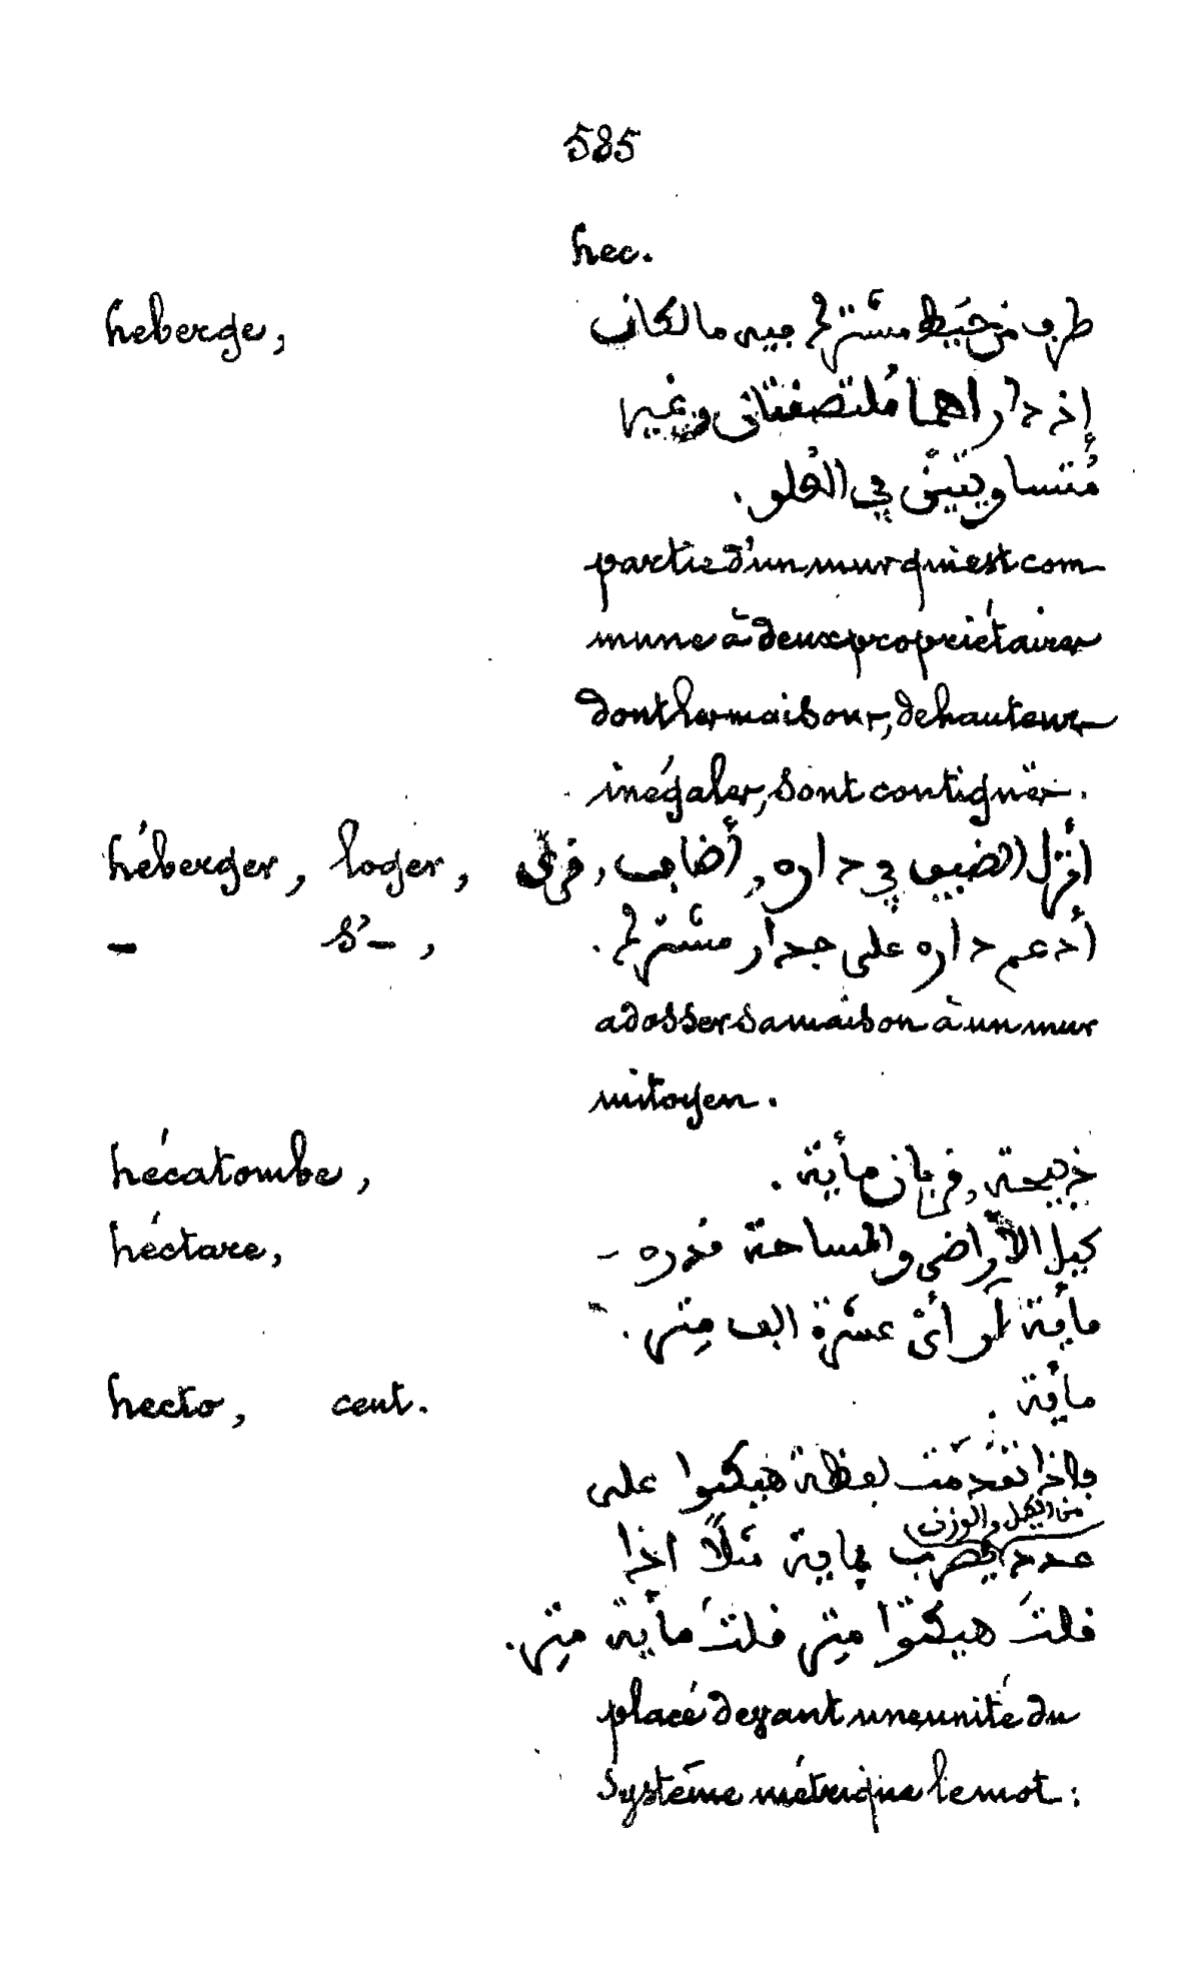 585
hec.
heberge, طرف من حَيط مشَترك فيه مالكان
إذ داراهما مُلتصقتان وغير
مُتساويتَينْ في العُلو.
partie d'un mur qui est com-
mune à deux propriétaires
dont les maisons, de hauteur
inégales, sont contiguës.
héberger, loger, أنزل الضيف في داره, أضاف, قرى
— s'—, أدعم داره على جدار مشَترك.
adosser sa maison à un mur
mitoyen.
hécatombe, ذبيحة, قربان مأية.
héctare, كيل الأراضي والمساحة قدره —
مأية آر أيْ عشَرة الف مِتر.
hecto, cent. مأية.
فإذا تقَدمَت لفظة هيكتوا على
من الكيل والوزن
عدد يضرب بماية مثَلاً اذا
قلتَ هيكتوا مِتر قلتَ مأية مِتر.
placé devant une unité du
système métrique le mot: